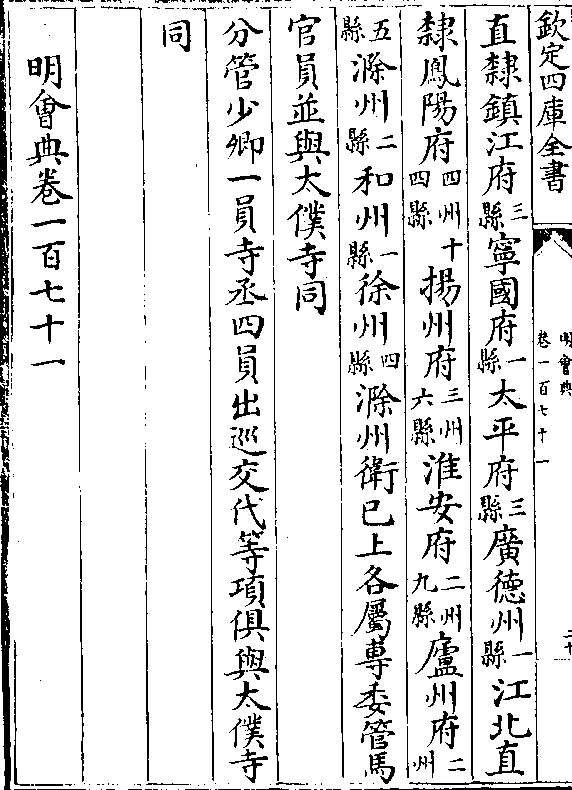 欽定四庫全書
明會典
卷一百七十一
直隸鎮江府三縣寧國府一縣太平府三縣廣德州一縣江北直
隸鳳陽府四州十四縣揚州府三州六縣淮安府二州九縣廬州府二州
五縣滁州二縣和州一縣徐州四縣滁州衛已上各屬專委管馬
官員並與太僕寺同
分管少卿一員寺丞四員出巡交代等項俱與太僕寺
同
明會典卷一百七十一